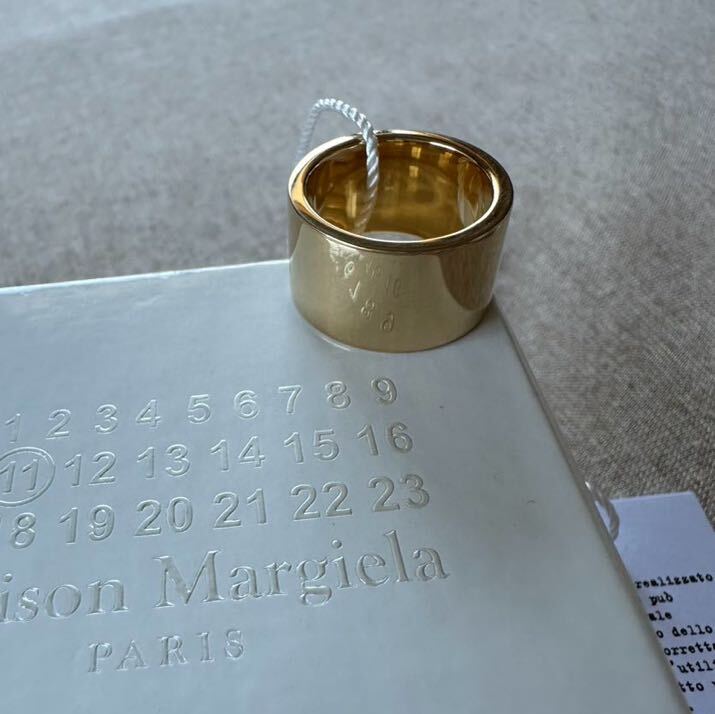 1 2 3 4 5 6 7 8 9
11 12 13 14 15 16
8 19 20 21 22 23
ison Margiela
PARIS
realizzato
pub
ale
o dello
orretto
'util
tto